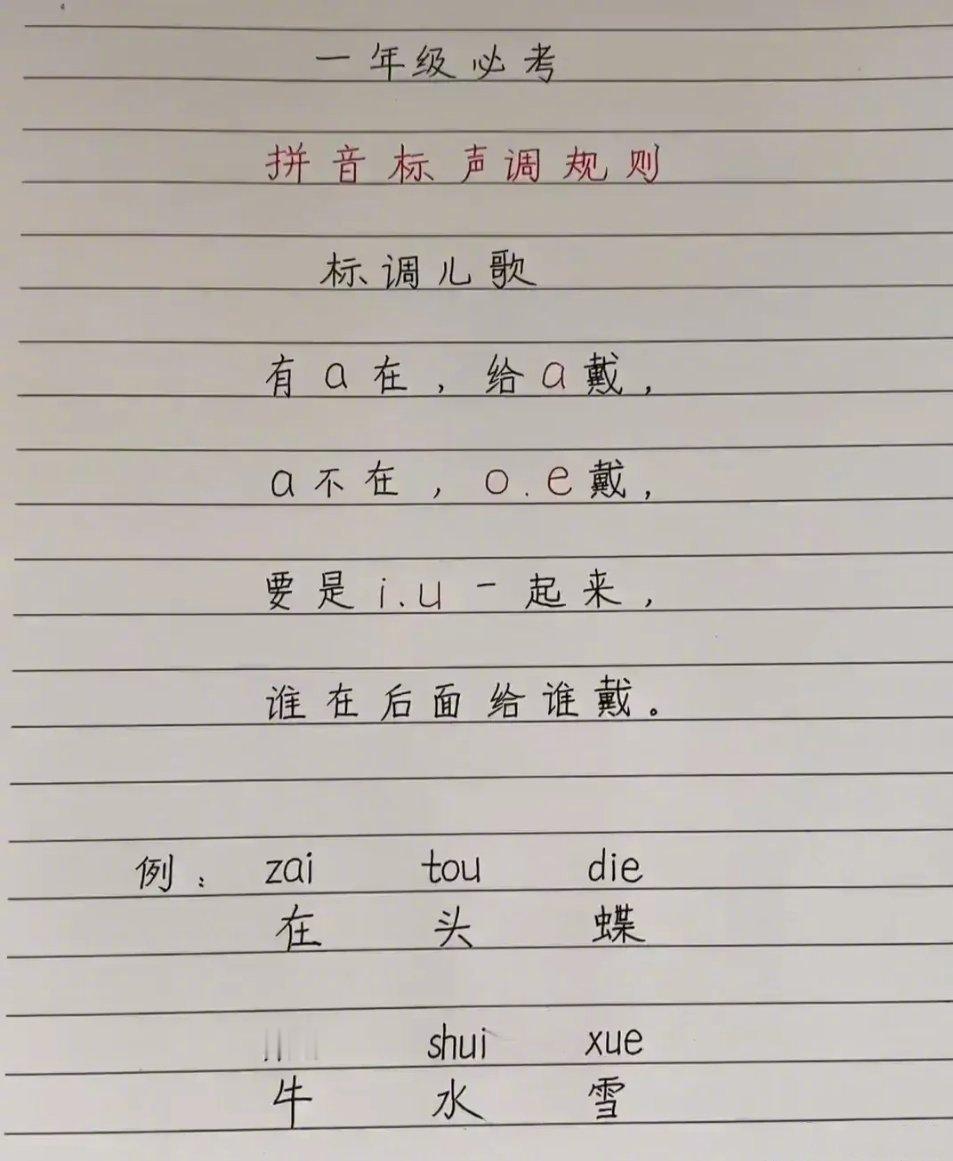 一年级必考
拼音标声调规则
标调儿歌
有a在，给a戴，
a不在，o.e戴，
要是i.u一起来，
谁在后面给谁戴。
例：zai tou die
在 头 蝶
shui xue
牛 水 雪